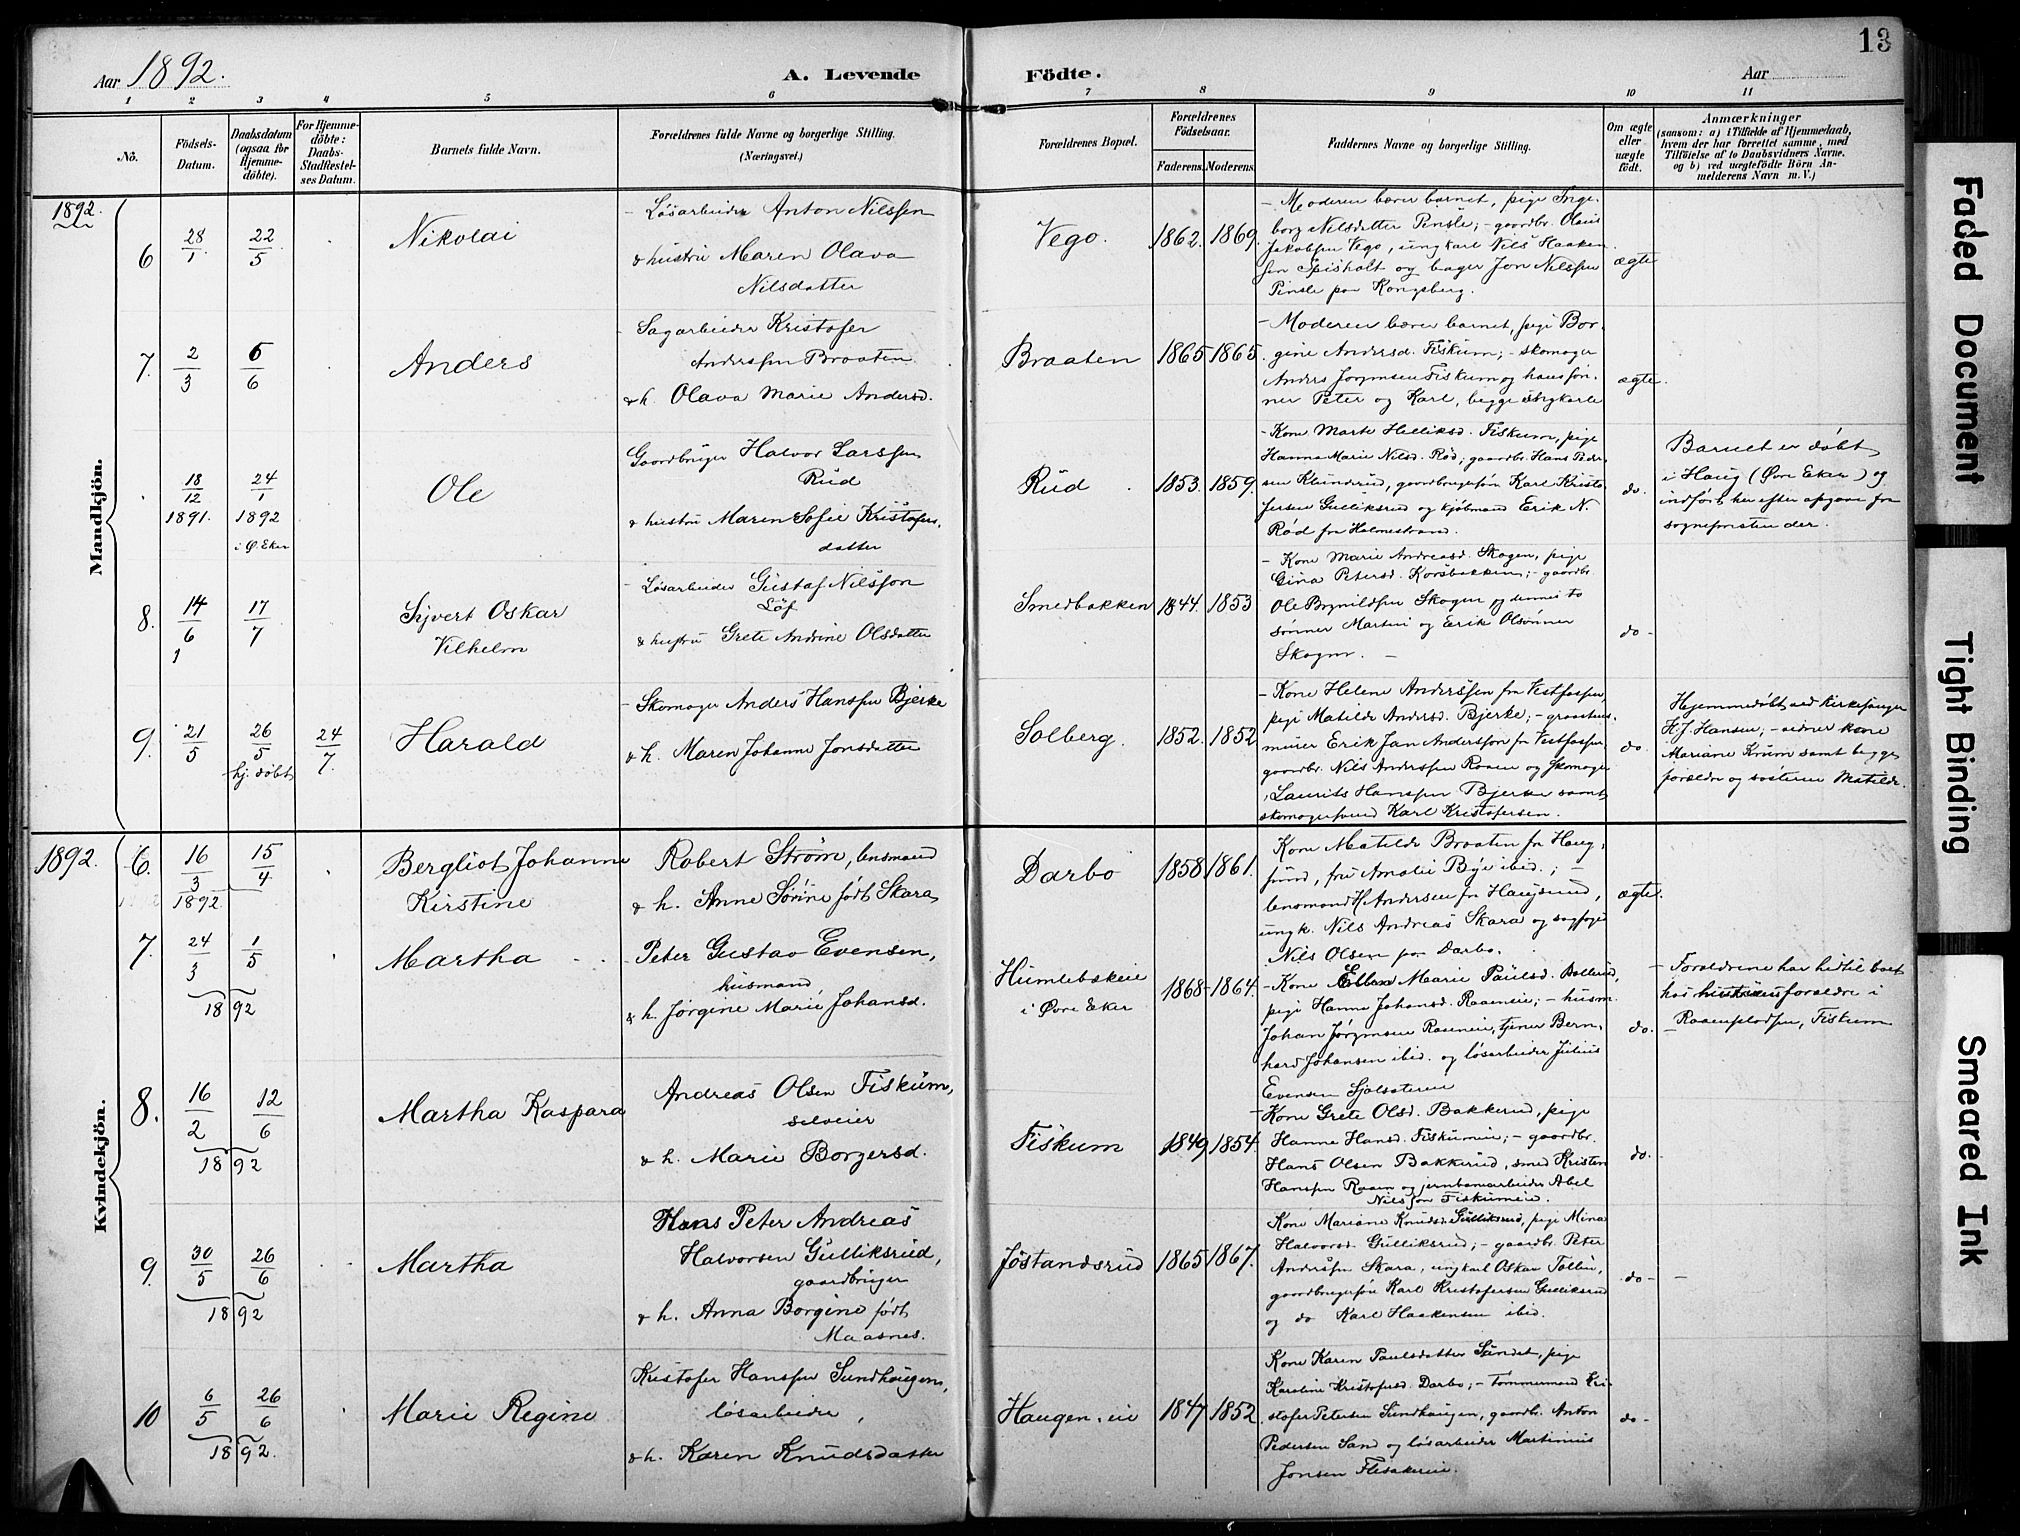 13
Aar 1892.
A. Levende
Födte.
Aar
1 2 3 4 5 6 7 8 9 10 11
No.
Födsels-
Datum.
Daabsdatum
(ogsaa for
Hjemme-
döbte).
For Hjemme-
döbte:
Daabs-
Stadfæstel-
ses Datum.
Barnets fulde Navn.
Forældrenes fulde Navne og borgerlige Stilling.
(Næringsvei.)
Forældrenes Bopæl.
Forældrenes
Födselsaar.
Faderens. Moderens.
Faddernes Navne og borgerlige Stilling.
Om ægte
eller
uægte
födt.
Anmærkninger
(saasom: a) i Tilfælde af Hjemmedaab,
hvem der har forrettet samme, med
Tilföielse af to Daabsvidners Navne.
og b) ved uægtefödte Börn An-
melderens Navn m. V.)
Mandkjön.
1892.
6
28/1
22/5
Nikolai
- Løsarbeider Anton Nilssen
& hustru Maren Olava
Nilsdatter
Vego.
1862. 1869.
- Moderen bærer barnet, pige Inge-
borg Nilsdatter Pinsle; - gaardbr. Olaus
Jakobsen Vego, ungkarl Nils Haaken-
sen Spisholt og bager Jon Nilssen
Pinsle paa Kongsberg.
ægte
7.
2/3
5/6
Anders
- Sagarbeider Kristofer
Anderssen Braaten
& h. Olava Marie Andersd.
Braaten
1865 1865.
- Moderen bærer barnet, pige Bor-
gine Andersd. Fiskum; - skomager
Anders Jørgensen Fiskum og hans søn-
ner Peter og Karl, begge ungkarle
ægte.
18/12
1891.
24/1
1892
i Ø. Eker
Ole
Gaardbruger Halvor Larssen
Rud
& hustru Maren Sofie Kristofers-
datter
Rud
1853. 1859.
- Kone Marte Helliksd. Fiskum, pige
Hanna Marie Nilsd. Rød; gaardbr. Hans Peder-
sen, gaardbrugersøn Karl Kristo-
fersen Gulliksrud og kjøbmand Erik N.
Rød fra Holmestrand.
do.
Barnet er døbt
i Haug (Øvre Eker) og
indført her efter opgave fra
sognepresten der.
8.
14/6
1
17/7
Syvert Oskar
Vilhelm
- Løsarbeider Gustaf Nilsson
Löf
& hustru Grete Andrine Olsdatter
Smedbakken
1844. 1853
- Kone Marie Andreasd. Skogen, pige
Gina Petersd. Korsbakken; - gaardbr.
Ole Brynildsen Skogen og dennes to
sønner Martin og Erik Olsønner
Skogen. -
do -
9.
21/5
26/5
hj. døbt
24/7.
Harald
- Skomager Anders Hanssen Bjerke
& h. Maren Johanne Jonsdatter
Solberg.
1852. 1852
- Kone Helene Anderssen fra Vestfossen,
pige Matilde Andersd. Bjerke; - graastens-
murer Erik Jan Andersson fr Vestfossen,
gaardbr. Nils Anderssen Raaen og skomager
Laurits Hanssen Bjerke samt
skomagersvend Karl Kristofersen.
do.
Hjemmedøbt ved kirkesanger
H. J. Hansen; - vidner kone
Mariane Krum samt begge
forældre og søsteren Matilde.
Kvindekjön.
1892.
6.
16/3
1892.
15/4
Bergliot Johanne
Kirstine
Robert Strøm, lensmand
& h. Anne Sørine født Skara
Darbo
1858 1861.
Kone Matilde Braaten fra Haug-
sund, fru Amalie Bye ibid.; -
lensmand H. Andersen fra Haugsund,
ungk. Nils Andreas Skara og sagfoged
Nils Olsen paa Darbo.
ægte.
7.
24/3
1/5
1892
Martha
Peter Gustav Evensen,
husmand,
& h. Jørgine Marie Johansd.
Humlebækeie
i Øvre Eker
1868 1864.
- Kone Ellen Marie Paulsd. Bollerud,
pige Hanne Johansd. Raaeneie; - husm.
Johan Jørgensen Raaeneie, tjener Bern-
hard Johansen ibid. og løsarbeider Julius
Evensen
do.
- Forældrene har hidtil boet
hos hustruens forældre i
- Raaenpladsen, Fiskum
8.
16/2
12/6
1892
Martha Kaspara
Andreas Olsen Fiskum,
selveier
& h. Marie Borgersd.
Fiskum
1849 1854.
- Kone Grete Olsd. Bakkerud, pige
Hanne Hansd. Fiskumeie; - gaardbr.
Hans Olsen Bakkerud, smed Kristen
Hanssen Raaen og jernbanearbeider Abel
Nilsson Fiskumeie.
do.
9.
30/5
26/6
1892
Martha
Hans Peter Andreas
Halvorsen Gulliksrud,
gaardbruger
& h. Anna Borgine født
Maasnes.
Jøstandsrud
1865 1867.
Kone Mariane Knudsd. Gulliksrud, pige Mina
Halvorsd. Gulliksrud; - gaardbr. Peter
Andrésen Skara, ungkarl Oskar Tollin,
gaardbrugersøn Karl Kristofersen Gulliksrud
og do Karl Haakensen ibid.
do -
10
6/5
26/6
1892.
Marie Regine
Kristofer Hanssen Sundhaugen,
løsarbeider,
& h. Karen Knudsdatter
Haugen-eie
1847 1852.
Kone Karen Paulsdatter Sundet, pige
Karoline Kristofersd. Darbo; - Tømmermand Kri-
stofer Petersen Sundhaugen, gaardbr. Anton
Pedersen Sand og løsarbeider Martinius
Jonsen Flesakereie.
do -
Faded Document
Tight Binding
Smeared Ink